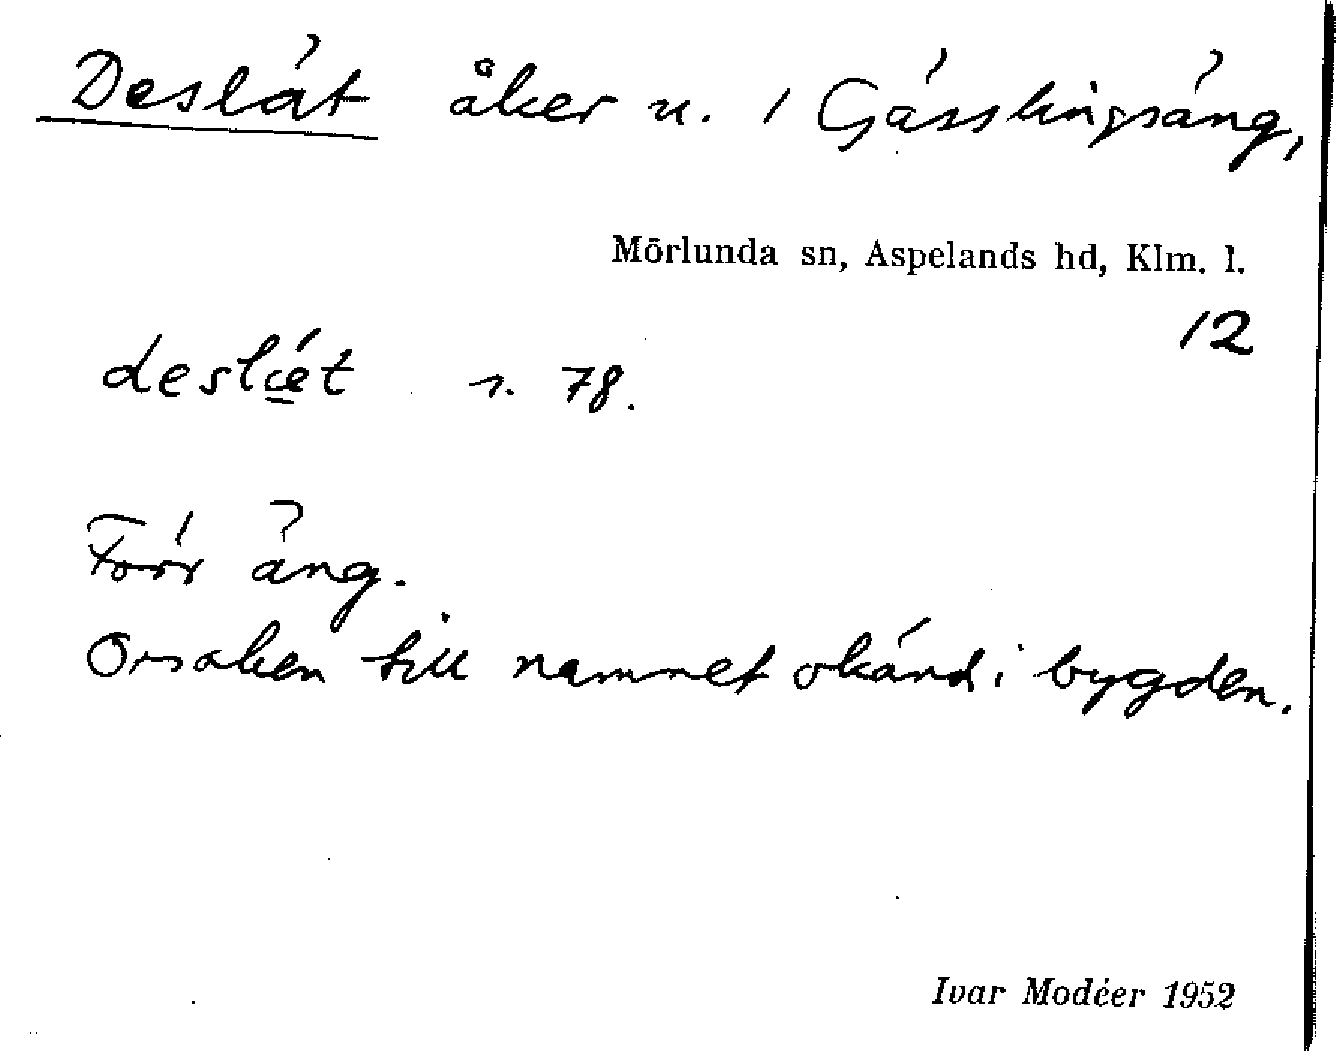 Deslät åker u. 1 Gässlingsäng,
Mörlunda sn, Aspelands hd, Klm. l.
12
deslæ̀t s. 78.
Förr äng.
Orsaken till namnet okänd i bygden.
Ivar Modéer 1952